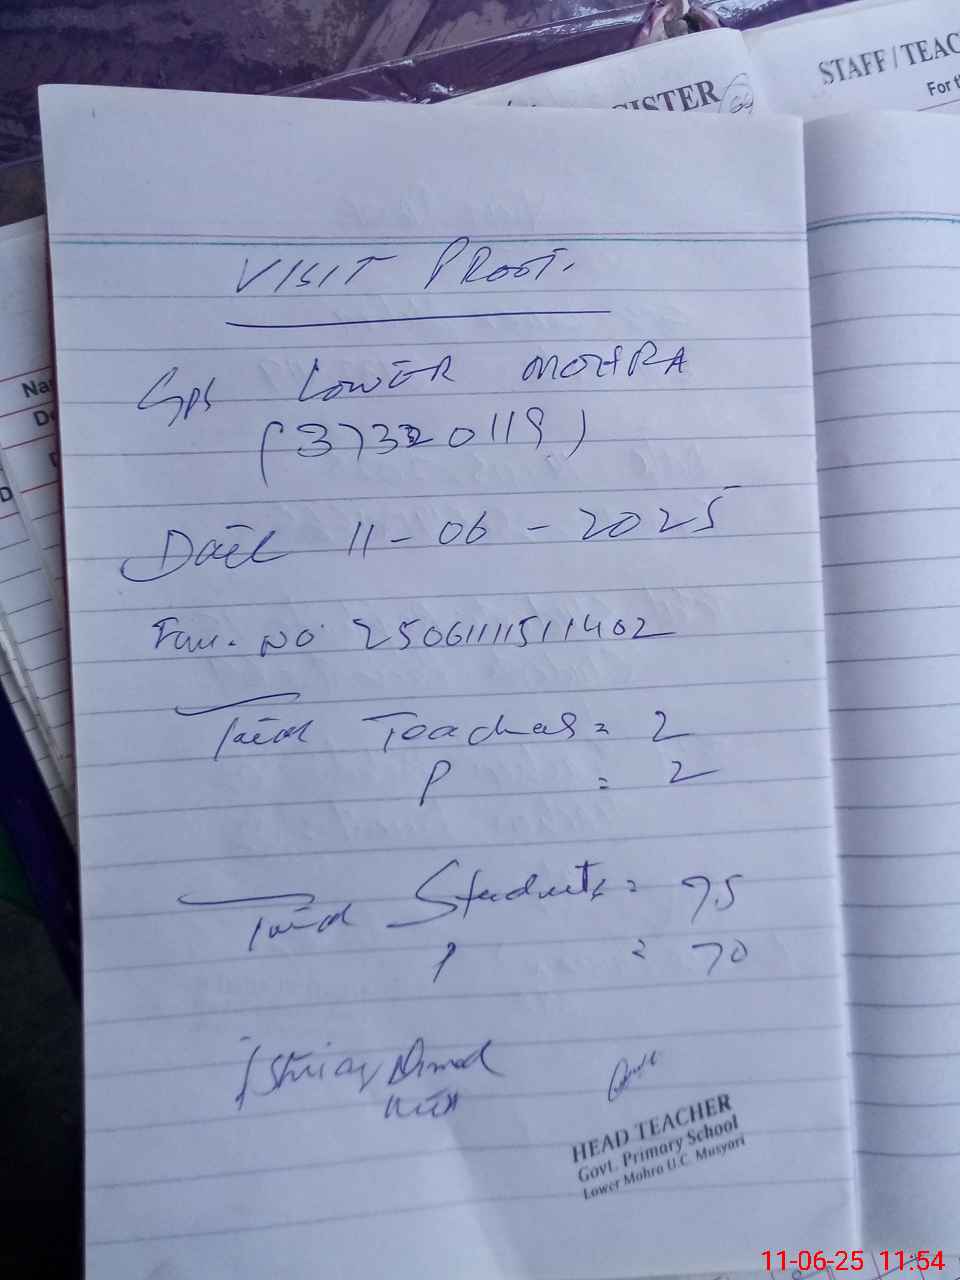 STAFF / TEAC
GISTER
For t
VISIT PROOF.
GPS LOWER MOHRA
(37320119)
Date 11-06-2025
Fau. No 2506111511402
Total Teachers = 2
P = 2
Total Students = 75
P = 70
Ishtiaq Ahmed
HEAD TEACHER
Govt. Primary School
Lower Mohra U.C. Musyari
11-06-25 11:54